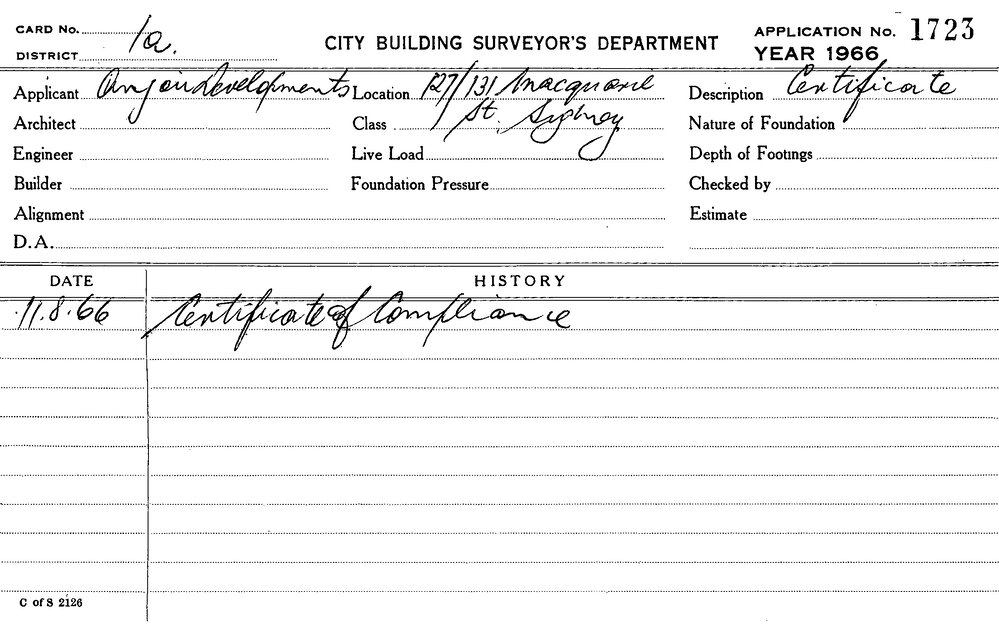 CARD No. 1a.
DISTRICT
CITY BUILDING SURVEYOR'S DEPARTMENT
APPLICATION No. 1723
YEAR 1966
Applicant Developments Location 127/131 Macquarie St. Sydney Description Certificate
Architect Class Nature of Foundation
Engineer Live Load Depth of Footings
Builder Foundation Pressure Checked by
Alignment Estimate
D.A.
DATE HISTORY
11.8.66 Certificate of Compliance
C of S 2126